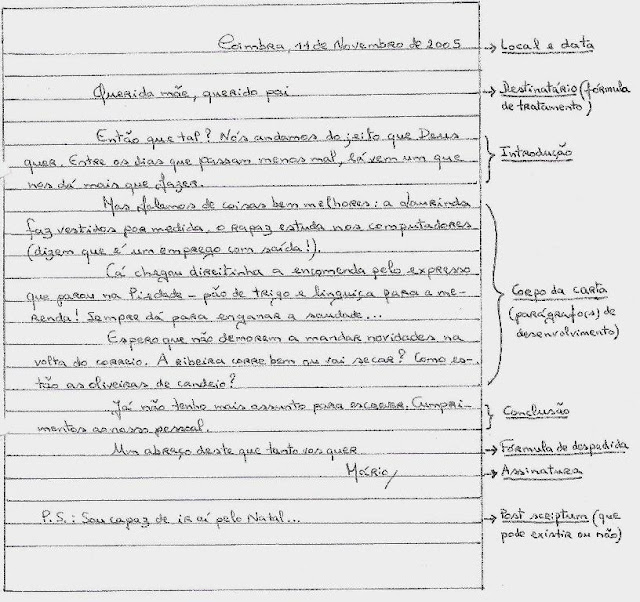 Coimbra, 11 de Novembro de 2005 → Local e data
Querida mãe, querido pai → Destinatário (fórmula
de tratamento)
Então que tal? Nós andamos do jeito que Deus
quer. Entre os dias que passam menos mal, lá vem um que
nos dá mais que fazer.
Introdução
Mas falemos de coisas bem melhores: a Laurinda
faz vestidos por medida, o rapaz estuda nos computadores
(dizem que é um emprego com saída!).
Cá chegou direitinha a encomenda pelo expresso
que parou na Piedade - pão de trigo e linguiça para a me-
renda! Sempre dá para enganar a saudade...
Espero que não demorem a mandar novidades na
volta do correio. A ribeira corre bem ou vai secar? Como es-
tão as oliveiras de candeio?
Corpo da carta
(parágrafo(s) de
desenvolvimento)
Já não tenho mais assunto para escrever. Cumpri-
mentos ao nosso pessoal.
Conclusão
Um abraço deste que tanto vos quer → Fórmula de despedida
Mário → Assinatura
P.S.: Sou capaz de ir aí pelo Natal... → Post scriptum (que
pode existir ou não)